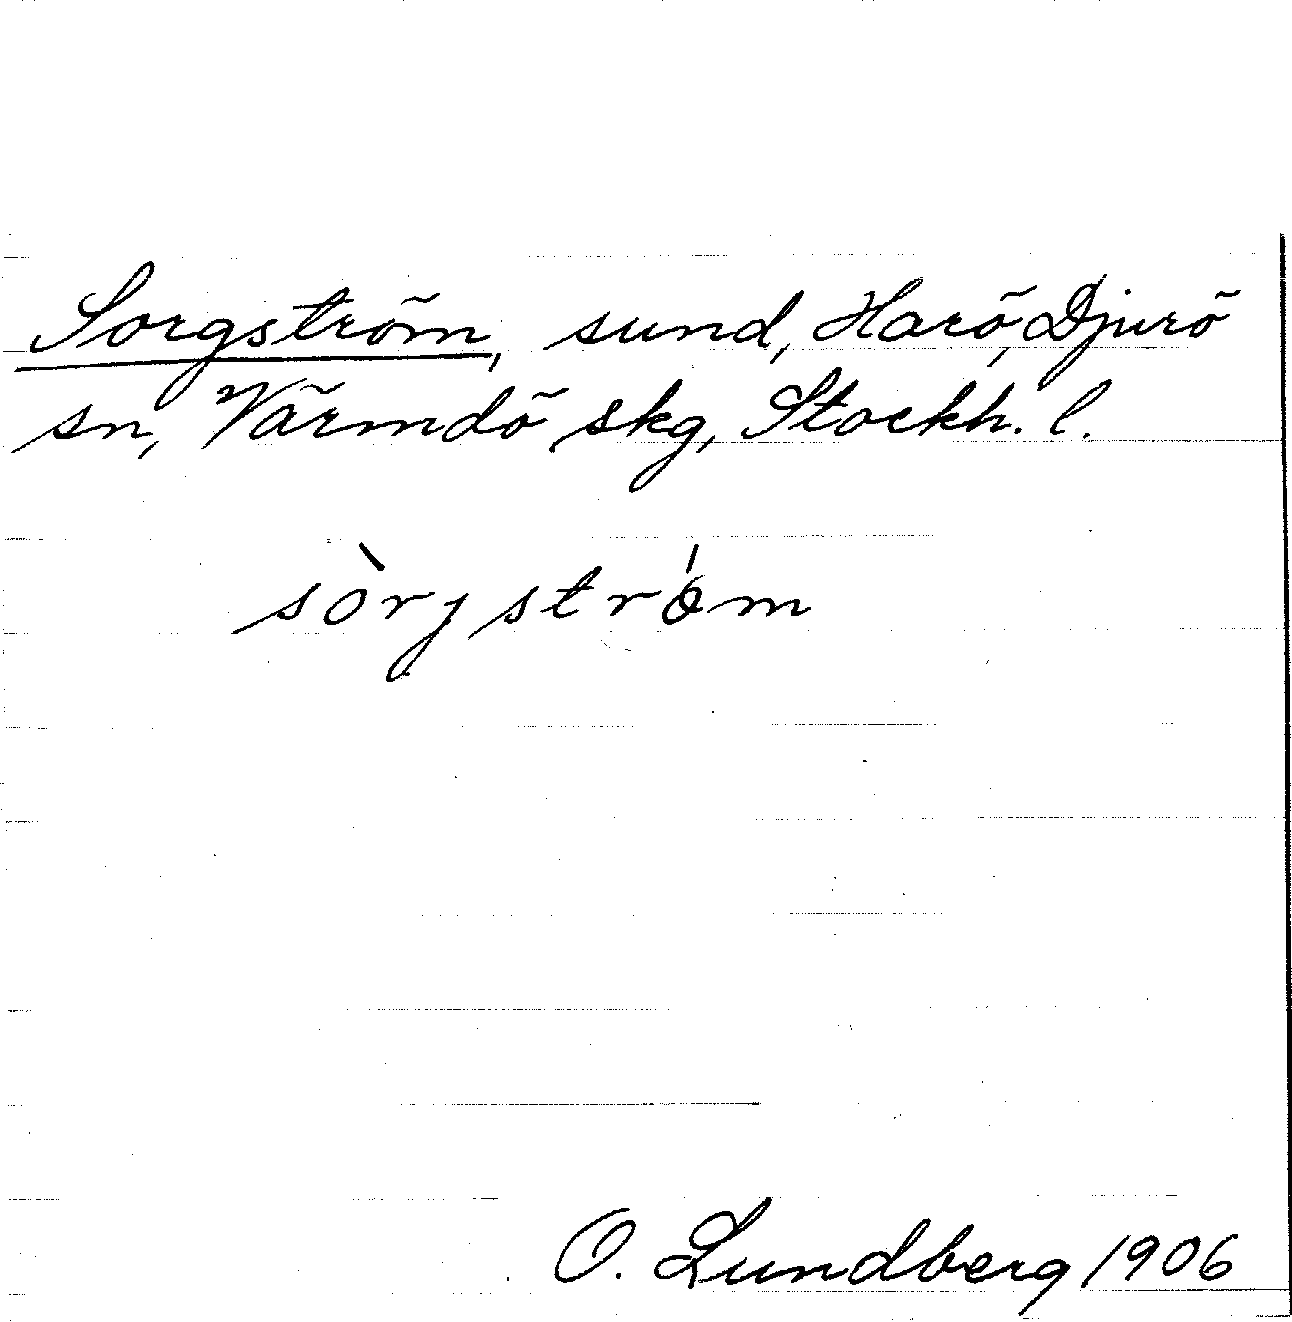 Sorgström, sund, Harö, Djurö
sn, Värmdö skg, Stockh. l.
sòrjstrǿm
O. Lundberg 1906